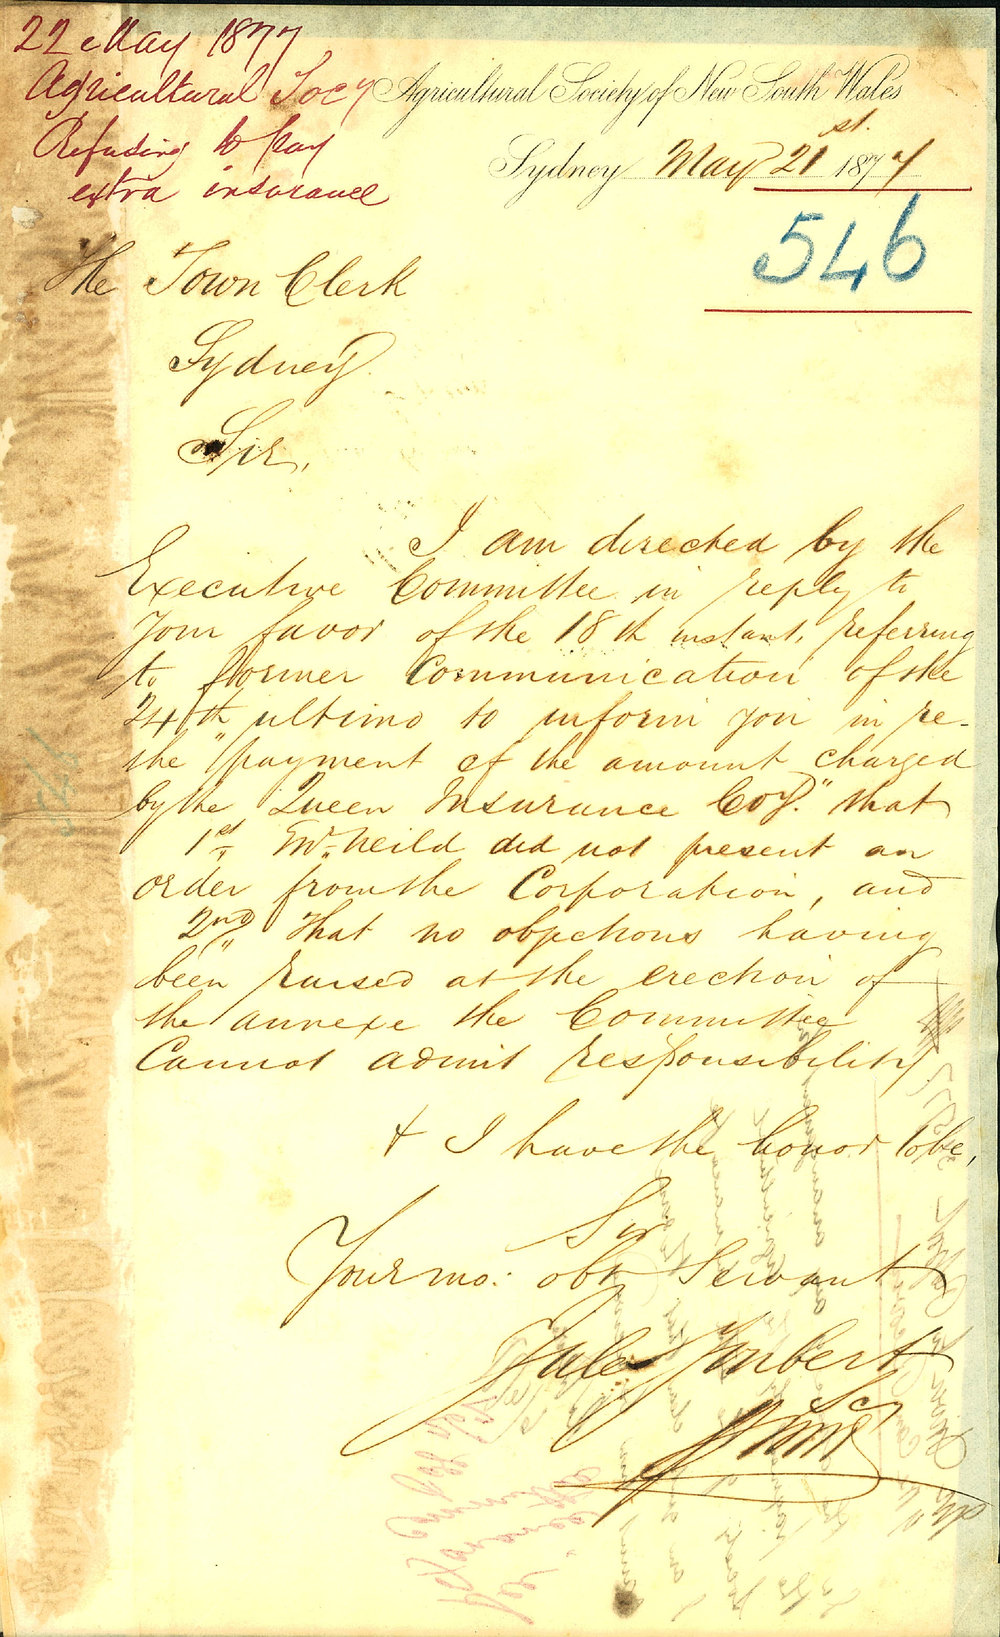 22 May 1877
Agricultural Socy
Refusing to pay
extra insurance
Agricultural Society of New South Wales
Sydney May 21st. 1877
546
The Town Clerk
Sydney.
Sir,
I am directed by the
Executive Committee in reply to
Your favor of the 18th instant, referring
to former Communication of the
24th ultimo to inform you in re-
the "payment of the amount charged
by the Queen Insurance Coy." that
1st Mr. Neild did not present an
order from the Corporation, and
2nd That no objections having
been raised at the erection of
the annexe the Committee
Cannot admit responsibility
& I have the honor to be,
Sir
Your mo: obt Servant
Jules Joubert
Sec